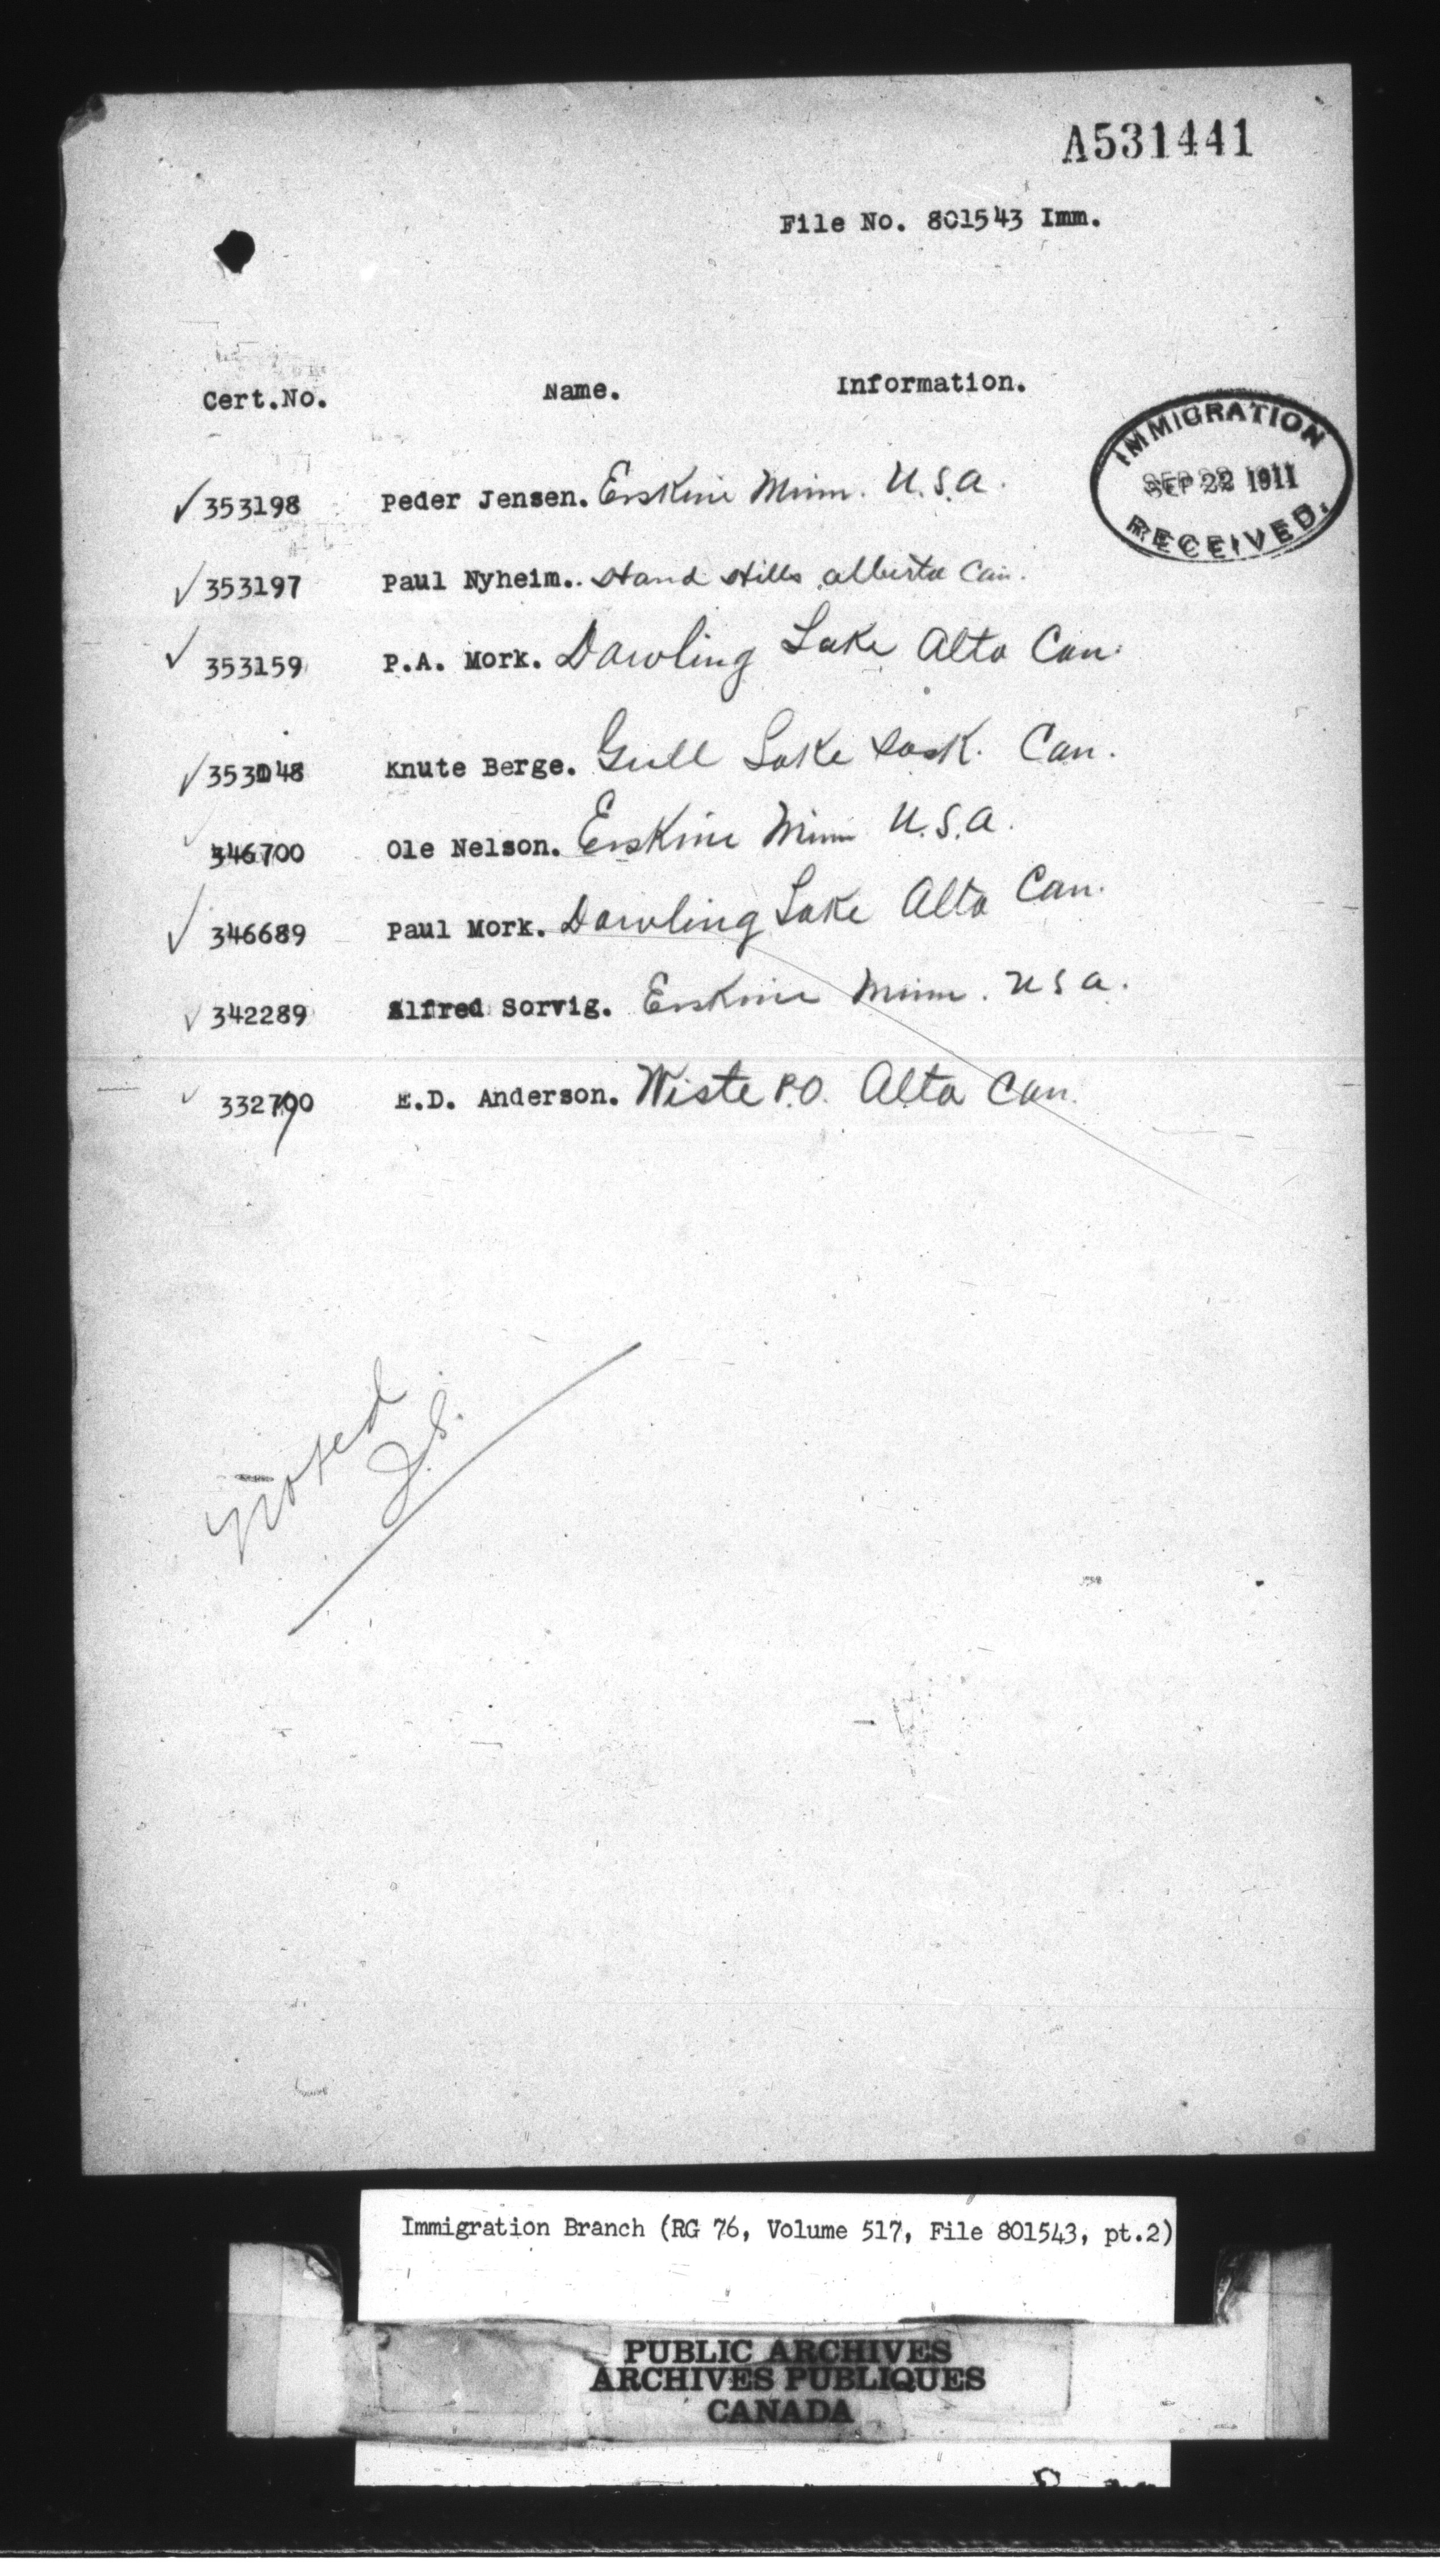 A531441
File No. 801543 Imm.
Cert.No. Name. Information.
IMMIGRATION
SEP 22 1911
RECEIVED.
✓ 353198 Peder Jensen. Erskine Minn. U.S.A.
✓ 353197 Paul Nyheim. Hand Hills Alberta Can.
✓ 353159 P.A. Mork. Dowling Lake Alta Can.
✓ 353048 Knute Berge. Gull Lake Sask. Can.
✓ 346700 Ole Nelson. Erskine Minn U.S.A.
✓ 346689 Paul Mork. Dowling Lake Alta Can.
✓ 342289 Alfred Sorvig. Erskine Minn. U S A.
✓ 332790 E.D. Anderson. Wiste P.O. Alta Can.
Noted
J.S.
Immigration Branch (RG 76, Volume 517, File 801543, pt.2)
PUBLIC ARCHIVES
ARCHIVES PUBLIQUES
CANADA